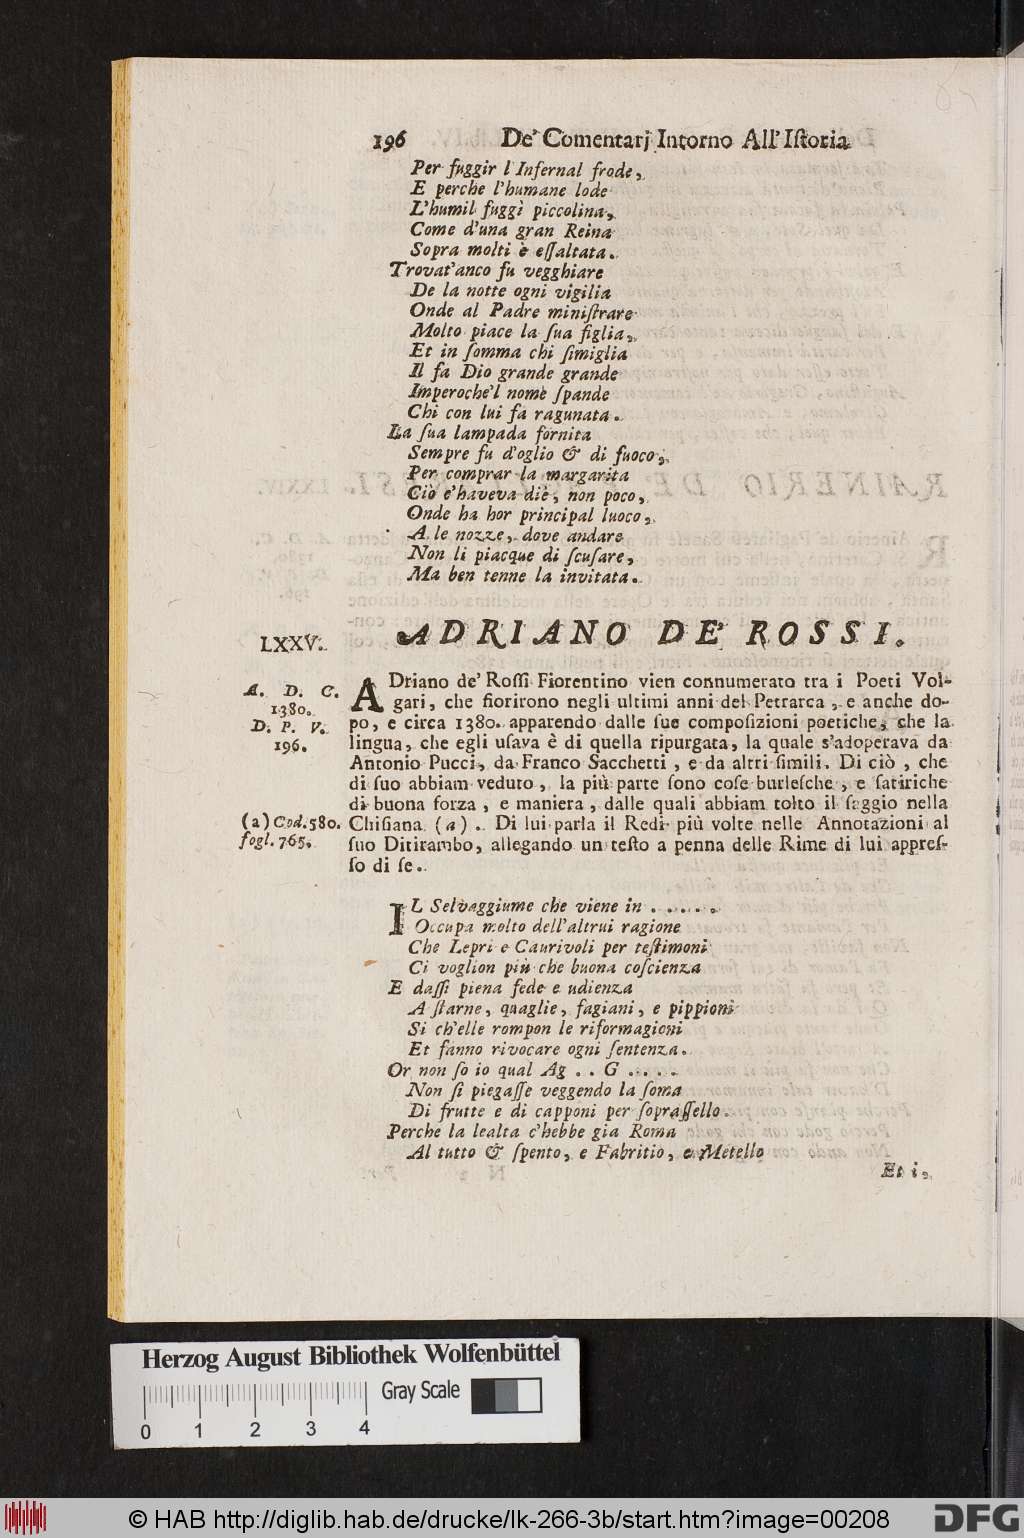 196 De' Comentarj Intorno All'Iſtoria
Per fuggir l'Infernal frode,
E perche l'humane lode
L'humil fuggì piccolina,
Come d'una gran Reina
Sopra molti è eſſaltata.
Trovat'anco fu vegghiare
De la notte ogni vigilia
Onde al Padre miniſtrare
Molto piace la ſua figlia,
Et in ſomma chi ſimiglia
Il fa Dio grande grande
Imperoche'l nome ſpande
Chi con lui fa ragunata.
La ſua lampada fornita
Sempre fu d'oglio & di fuoco,
Per comprar la margarita
Ciò c'haveva diè, non poco,
Onde ha hor principal luoco,
A le nozze, dove andare
Non li piacque di ſcuſare,
Ma ben tenne la invitata.
LXXV. ADRIANO DE' ROSSI.
A. D. C.
1380.
D. P. V.
196.
ADriano de' Roſſi Fiorentino vien connumerato tra i Poeti Vol-
gari, che fiorirono negli ultimi anni del Petrarca, e anche do-
po, e circa 1380. apparendo dalle ſue compoſizioni poetiche, che la
lingua, che egli uſava è di quella ripurgata, la quale s'adoperava da
Antonio Pucci, da Franco Sacchetti, e da altri ſimili. Di ciò, che
di ſuo abbiam veduto, la più parte ſono coſe burleſche, e ſatiriche
di buona forza, e maniera, dalle quali abbiam tolto il ſaggio nella
Chiſiana (a). Di lui parla il Redi più volte nelle Annotazioni al
ſuo Ditirambo, allegando un teſto a penna delle Rime di lui appreſ-
ſo di ſe.
(a) Cod. 580.
fogl. 765.
IL Selvaggiume che viene in . . . . . .
Occupa molto dell'altrui ragione
Che Lepri e Caurivoli per teſtimoni
Ci voglion più che buona coſcienza
E daſſi piena fede e udienza
A ſtarne, quaglie, fagiani, e pippioni
Si ch'elle rompon le riformagioni
Et fanno rivocare ogni ſentenza.
Or non ſo io qual Ag . . G . . . . .
Non ſi piegaſſe veggendo la ſoma
Di frutte e di capponi per ſopraſſello.
Perche la lealta c'hebbe gia Roma
Al tutto & ſpento, e Fabritio, e Metello
Et i,
Herzog August Bibliothek Wolfenbüttel
Gray Scale
0 1 2 3 4
© HAB http://diglib.hab.de/drucke/lk-266-3b/start.htm?image=00208
DFG